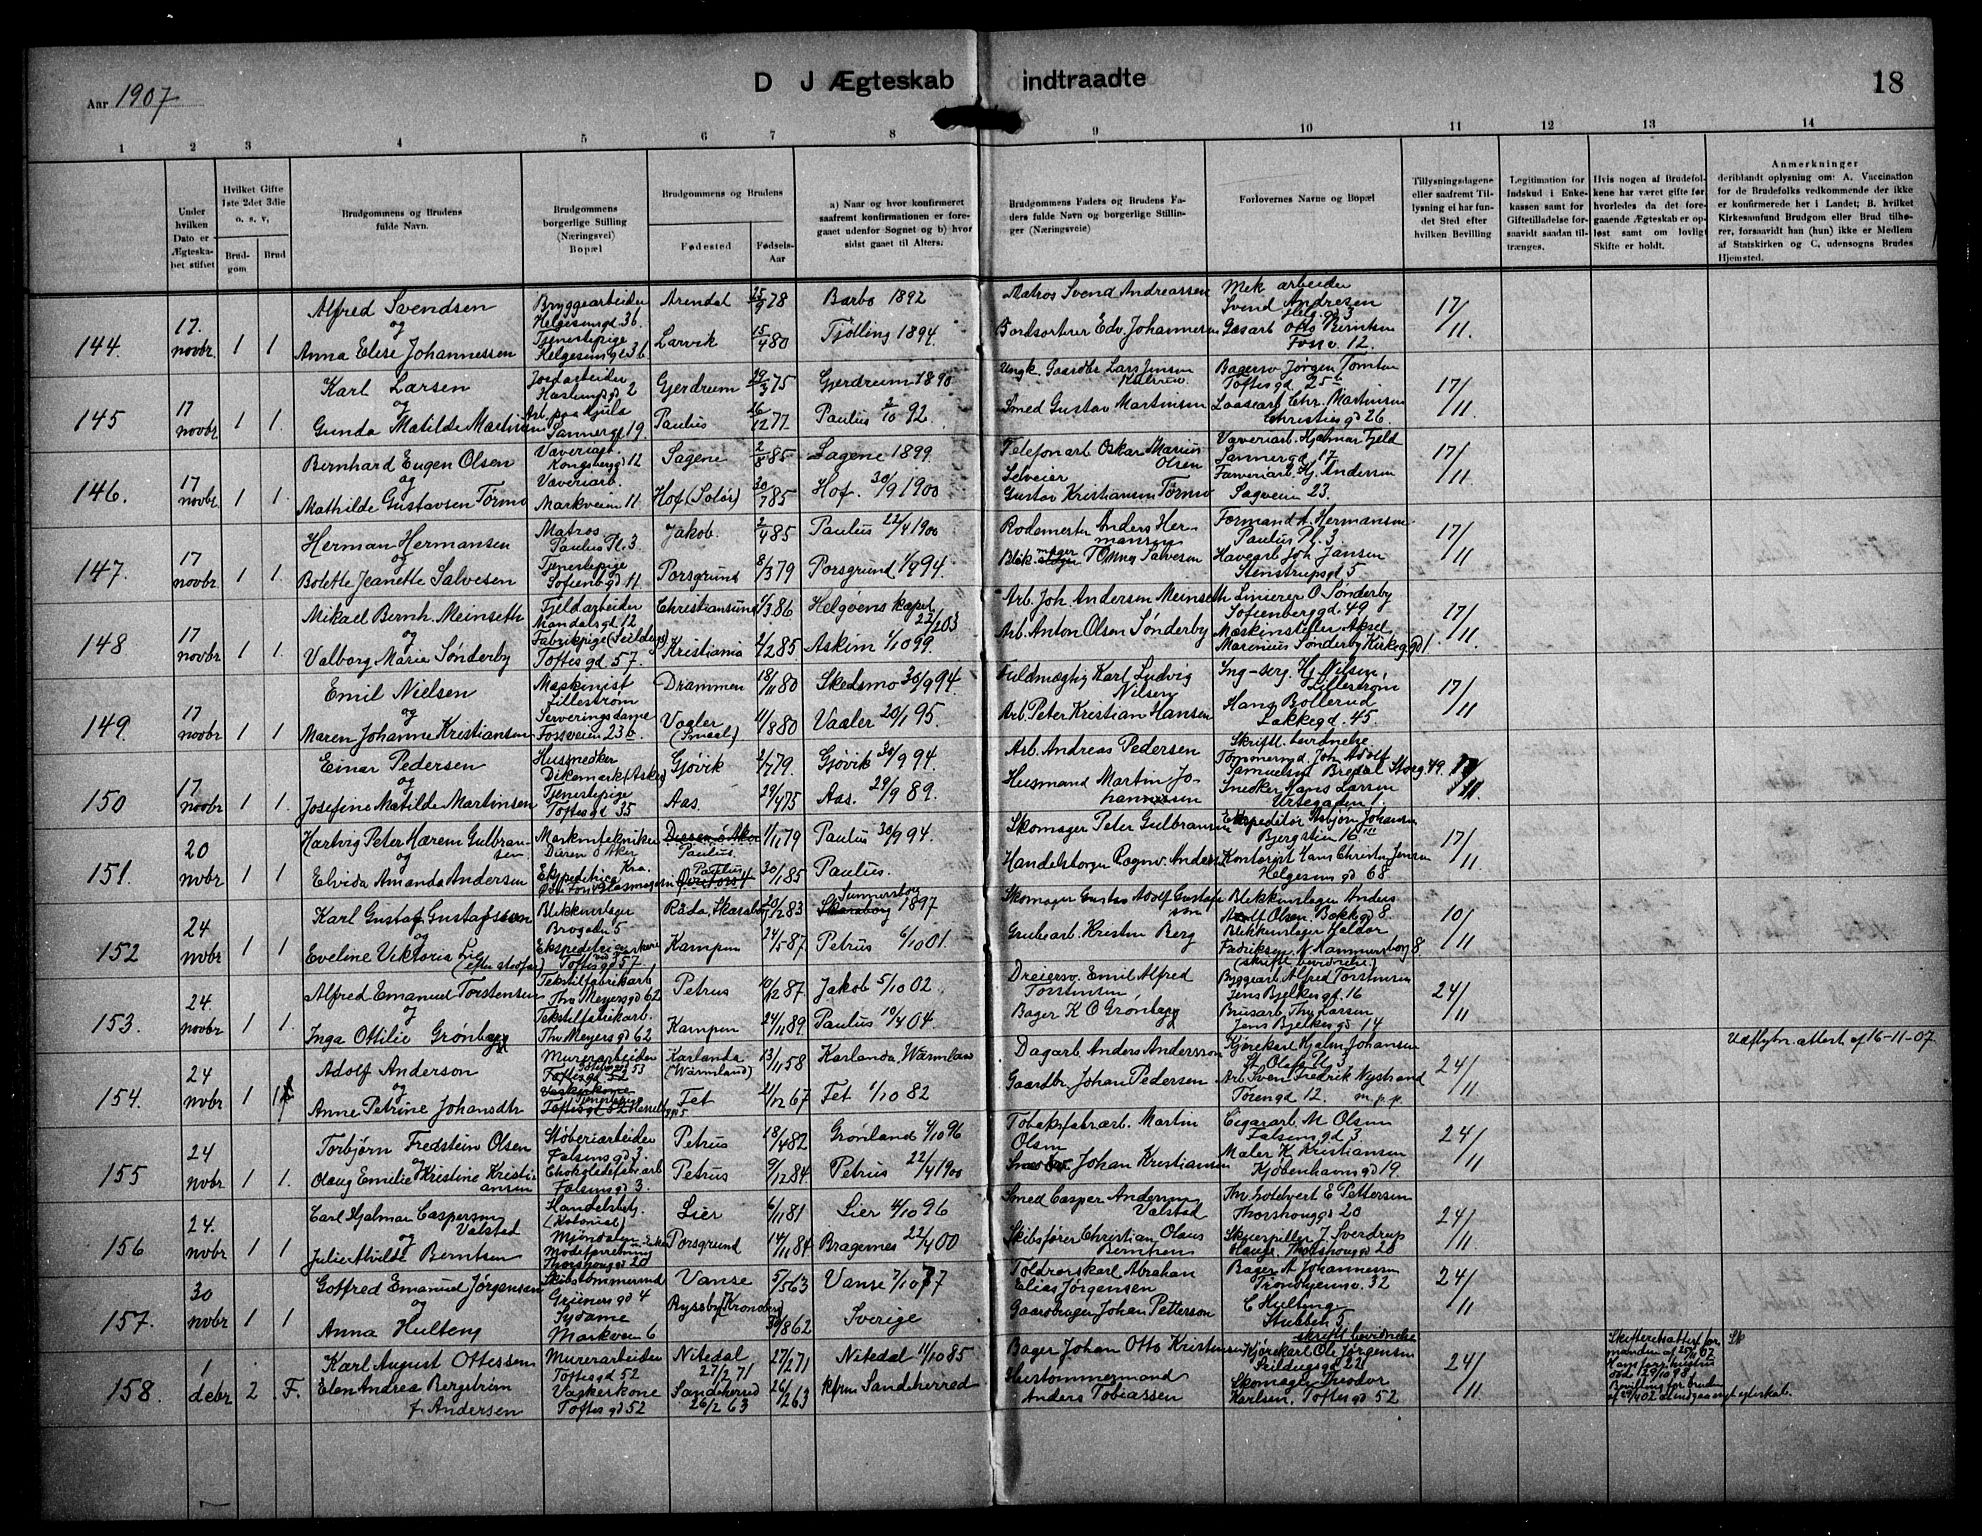 Aar 1907
D J Ægteskab indtraadte
18
1 2 3 4 5 6 7 8 9 10 11 12 13 14
Under hvilken Dato er Ægteskabet stiftet
Hvilket Gifte 1ste 2det 3die o. s. v,
Brudgom
Brud
Brudgommens og Brudens fulde Navn.
Brudgommens borgerlige Stilling (Næringsvei) Bopæl
Brudgommens og Brudens
Fødested
Fødsels-Aar
a) Naar og hvor konfirmeret saafremt konfirmationen er foregaaet udenfor Sognet og b) hvor sidst gaaet til Alters.
Brudgommens Faders og Brudens Faders fulde Navn og borgerlige Stillinger (Næringsveie)
Forlovernes Navne og Bopæl
Tillysningsdagene eller saafremt Tillysning ei har fundet Sted efter hvilken Bevilling
Legitimation for Indskud i Enkekassen samt for Giftetilladelse forsaavidt saadan tiltrænges.
Hvis nogen af Brudefolkene har været gifte før, hvorledes da det foregaaende Ægteskab er opløst samt om lovligt Skifte er holdt.
Anmerkninger deriblandt oplysning om: A. Vaccination for de Brudefolks vedkommende der ikke er konfirmerede her i Landet; B. hvilket Kirkesamfund Brudgom eller Brud tilhører, forsaavidt han (hun) ikke er Medlem af Statskirken og C, udensogns Brudes Hjemsted.
144. 17. novbr 1 1
Alfred Svendsen Bryggearbeider Helgesensgd 36 Arendal 25/9 78 Barbo 1892 Matros Svend Andreassen Mek arbeider Svend Andresen Helg. gd 3 17/11.
og
Anna Elise Johannessen Tjenestepige Helgesensgd 36 Larvik 15/4 80 Tjølling 1894. Bordsorterer Edv. Johannesen Gasarb Otto Berntsen Fossv. 12.
145 17 novbr 1 1.
Karl Larsen Jordarbeider 2 Gjerdrum 29/3 75 Gjerdrum 1890 Ungk. Gaardbr Lars Jensen Bagersv Jørgen Tomten Toftesgd 25 17/11.
og
Gunda Matilde Martinsen Arb. paa Hjula Sannergd 19. Paulus 26/12 77 Paulus 2/10 92. Smed Gustav Martinsen Chr. Martinsen Christiesgd 26.
146. 17 novbr 1 1.
Bernhard Eugen Olsen Væveriarb. Kongsberggd 12 Sagene 2/8 85 Sagene 1899. Telefonarb Oskar Marius Olsen Væveriarb. Hjalmar Fjeld Sannergd 17 17/11.
og
Mathilde Gustavsen Tørmo Væveriarb. Markveien 11. Hof (Solør) 30/7 85 Hof. 30/9 1900 Selveier Gustav Kristiansen Tørmo Farveriarb. Hj. Andersen Sagveien 23.
147. 17 novbr 1 1.
Herman Hermansen Matros Paulus Pl. 3 Jakob. 2/4 85 Paulus 22/4 1900 Rodemester Anders Hermansen Formand A. Hermansen. Paulus Pl. 3 17/11
og
Bolette Jeanette Salvesen Tjenestepige Sofienbgd 11 Porsgrund 8/3 79 Porsgrund 94. Salvesen Havearb Joh. Jansen Stenstrupsgd 5
148 17 novbr 1 1.
Mikael Bernh. Meinseth Fjeldarbeider Mandalsgd 12 Christiansund 1/3 86 Helgøens kapel 22/2 03 Arb. Joh. Andersen Meinseth Linierer O. Sønderby Sofienberggd. 49 17/11
og
Valborg Marie Sønderby Fabrikpige (Seildugs) Toftesgd. 57. Kristiania 2/2 85. Askim 1/10 99. Arb. Anton Olsen Sønderby Maskinstifter Aksel Marinius Sønderby Kirkegd 1
149. 17 novbr 1 1
Emil Nielsen Maskinist Lillestrøm Drammen 18/11 80 Skedsmo 30/9 94. Fuldmægtig Karl Ludvig Nilsen Hj Nilsen, Lillestrøm 17/11
og
Maren Johanne Kristiansen Serveringsdame Fossveien 23 b. Vaaler (Smaal.) 11/8 80 Vaaler 20/1 95. Arb. Peter Kristian Hansen Hans Bollerud Lakkegd. 45.
150 17 novbr 1 1.
Einar Pedersen Hussnedker Dikemark (Asker) Gjøvik 2/7 79. Gjøvik 30/9 94. Arb. Andreas Pedersen Skriftl. bevidnelse Tømmermd. Joh Adolf Samuelsen Bredal Storg. 49. 17/11.
og
Josefine Matilde Martinsen Tjenestepige Toftesgd. 35 Aas. 29/4 75 Aas. 29/9 89. Husmand Martin Johannessen Snedker Hans Larsen Urtegaden 1.
151. 20 nvbr 1 1
Hartvig Peter Hærem Gulbransen Ø Aker Paulus. 1/11 79 Paulus 30/9 94. Skomager Peter Gulbransen Expeditør Asbjørn Johansen Bergstien 16 17/11
og
Elvida Amanda Andersen Ekspeditrice Kra. Paulus 30/1 85 Paulus. Handelsborger Ragnv. Anders Kontorist Hans Christen Jensen Helgesensgd 68
152 24 nvbr 1 1
Karl Gustaf Gustafsson Blikkenslager Brogaden 5 Råda, Skarabg 20/12 83 1897 Skomager Gustav Adolf Gustafsson Blikkenslager Anders Adolf Olsen. Bokkgd 8. 10/11
og
Eveline Viktoria Lie (efter stedfar) Toftesgd 57 Kampen 24/5 87 Petrus 6/10 01. Grubearb. Kristen Berg Blikkenslager Haldor N. Hammersborg 8 (skriftl. bevidnelse.)
153. 24. novbr 1 1.
Alfred Emanuel Torstensen Tekstilfabrikarb Thv Meyersgd 62 Petrus 10/12 87 Jakob 5/10 02. Dreiersv. Emil Alfred Torstensen Byggearb Alfred Torstensen Jens Bjelkesgt. 16 24/11
og
Inga Ottilie Grønberg Tekstilfabrikarb. Thv Meyersgd 62 Kampen 24/11 89 Paulus 10/4 04. Bager K O Grønberg Brusarb. Thv. Larsen Jens Bjelkesgd 14
154. 24 nvbr 1 1
Adolf Anderson Murerarbeider Toftesgd 52 Karlanda (Wärmland) 13/11 58 Karlanda, Wärmland Dagarb. Anders Andersson Kjørekarl Hjalm Johansen St. Olafs Pl 3 24/11 Udflytn. attest af 16-11-07.
og
Anne Petrine Johansdtr Tjenestepige Fet 21/12 67 Fet 1/10 82 Gaardbr Johan Pedersen Arb Sven Fredrik Nystrand Torengd 12. m.p.p.
155 24 nvbr 1 1.
Torbjørn Fredstein Olsen Støberiarbeider Falsensgd 3. Petrus 18/4 82 Grønland 4/10 96 Tobaksfabrarb. Martin Olsen Cigararb. M Olsen Falsensgd 3. 24/11
og
Olaug Emilie Kristine Kristiansen Chokoladefabrarb Falsensgd 3. Petrus 9/12 84. Petrus 22/4 1900 Johan Kristiansen Maler K Kristiansen Kjøbenhavnsgd 19.
156 24. nvbr 1 1
Carl Hjalmar Caspersen Valstad Handelsbetj. (Kolonial) Mjøndalen Lier 6/11 81 Lier 4/10 96 Smed Casper Andersen Valstad E Pettersen Thorshouggd 20 24/11.
og
Julie Alvilde Berntsen Modeforretning Thorshouggd 20 Porsgrund 14/11 84 Bragernes 22/4 00 Skibsfører Christian Olaus Berntsen Skuespiller J. Sverdrup Olauss. Thorshouggd 20
157. 30 nvbr 1 1
Gotfred Emanuel Jørgensen Skibstømmermd Grünersgd 4 Vanse 5/10 63 Vanse 7/10 77 Toldrorskarl Abraham Elias Jørgensen Bager A Johannesen Trondhjemsv. 32 24/11
og
Anna Hulteng Sydame Markveien 6 Ryssby (Kronoberg) 30/8 62 Sverige Gaardbruger Johan Petterson C Hulting Stubben 5 skriftl bevidnelse
158. 1 debr 2. F.
Karl August Ottessen Murerarbeider Toftesgd 52 Nitedal 27/2 71 27/2 71 Nitedal 11/10 85 Bager Johan Otto Kristiansen Kjørekarl Ole Jørgensen Seildugsgd 22 24/11 Skifteretsattest for manden af 25/11 07 Hans forr. hustru død 29/10 98 Bevilling for bruden af 29/4 02 at indgaa nyt egteskab.
Elen Andrea Bergstrøm f. Andersen Vaskerkone Toftesgd 52 Sandeherred 26/2 63 26/12 63 Sandeherred Anders Tobiassen Skomager Teodor Karlsen, Toftesgd 52